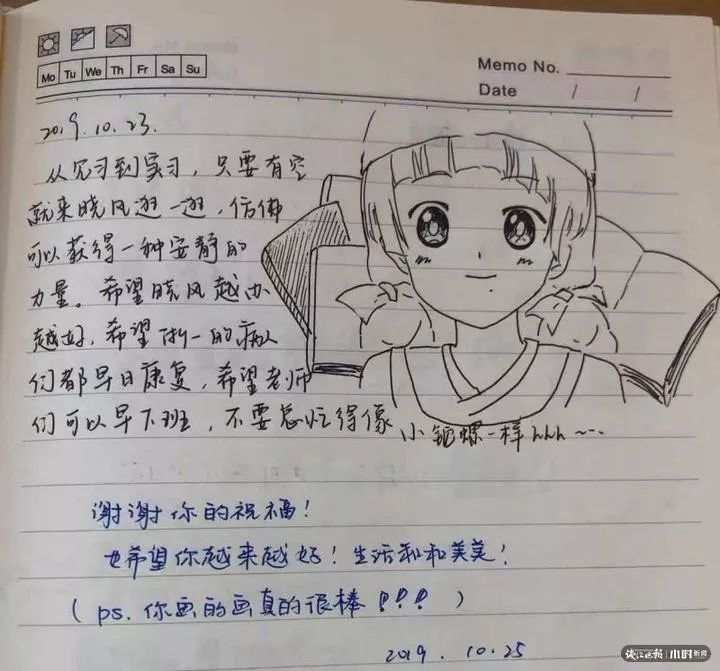 Mo Tu We Th Fr Sa Su
Memo No.
Date / /
2019.10.23.
从见习到实习，只要有空
就来晓风逛一逛，仿佛
可以获得一种安静的
力量。希望晓风越办
越好，希望浙一的病人
们都早日康复，希望老师
们可以早下班，不要总忙得像小陀螺一样hhh~~
谢谢你的祝福！
也希望你越来越好！生活和和美美！
（ps.你画的画真的很棒!!!）
2019.10.25
钱江晚报 小时新闻